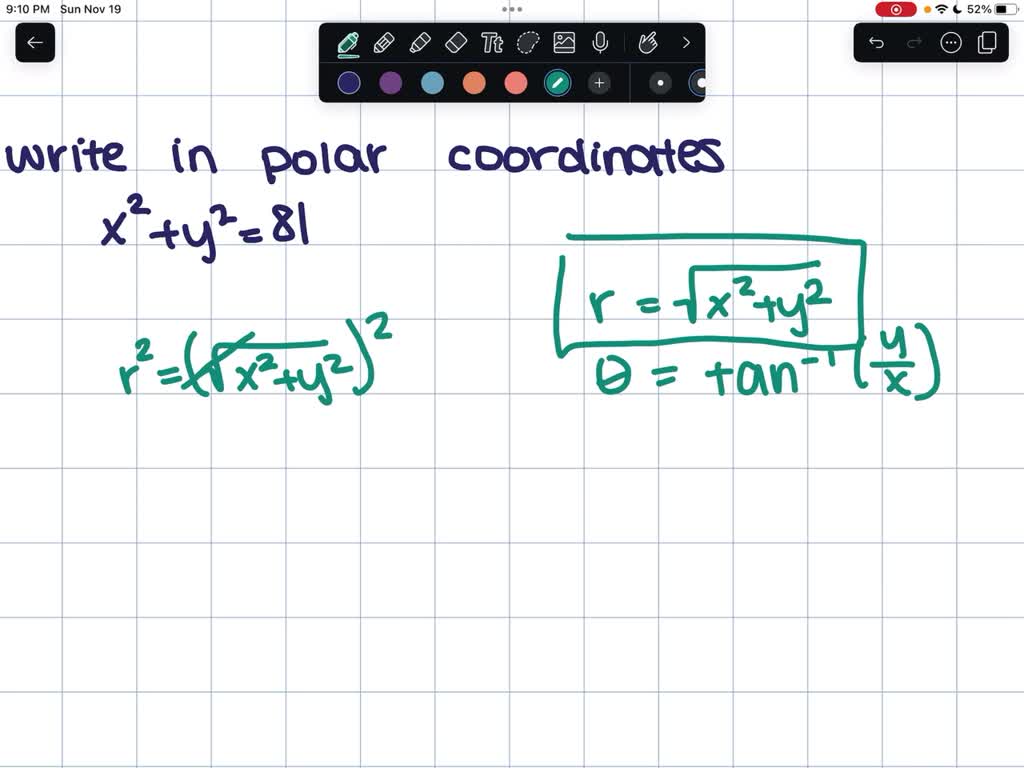 9:10 PM Sun Nov 19
52%
Tt
write in polar coordinates
x² + y² = 81
r = √x² + y²
r² = (√x² + y²)²
θ = tan⁻¹ (y/x)